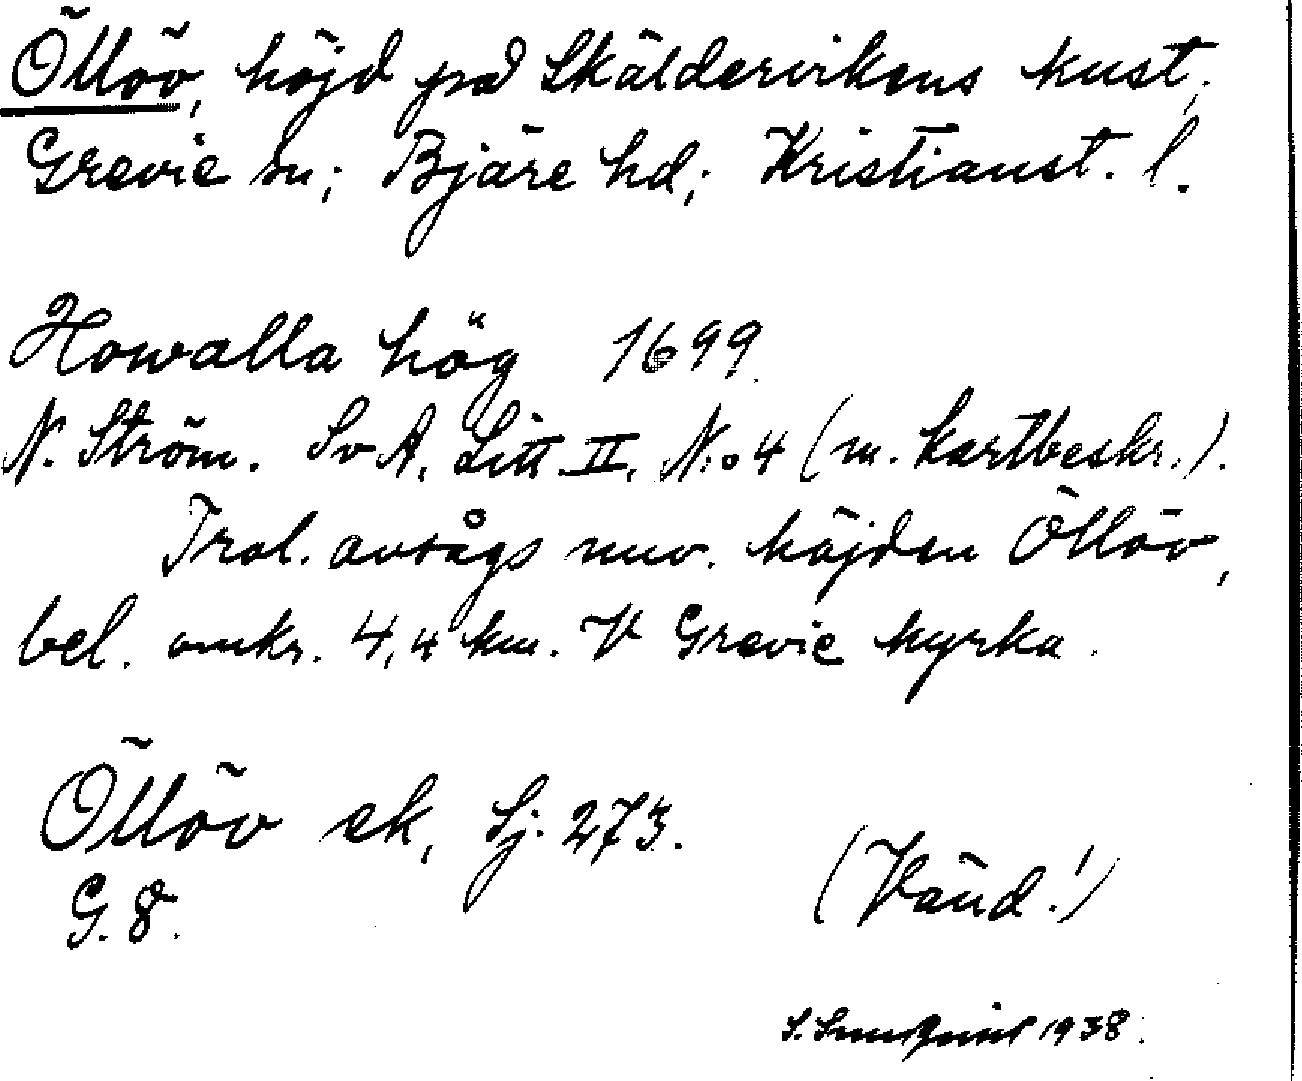 Öllöv, höjd på Skäldervikens kust;
Grevie sn; Bjäre hd; Kristianst. l.
Howalla hög 1699
N. Ström. SvA, Litt. II, N:o 4 (m. kartbeskr.).
Trol. avsågs nuv. höjden Öllöv,
bel. omkr. 4,4 km. V Grevie kyrka.
Öllöv ek, Sj. 273.
G. 8.
(Vänd!)
S. 1938.